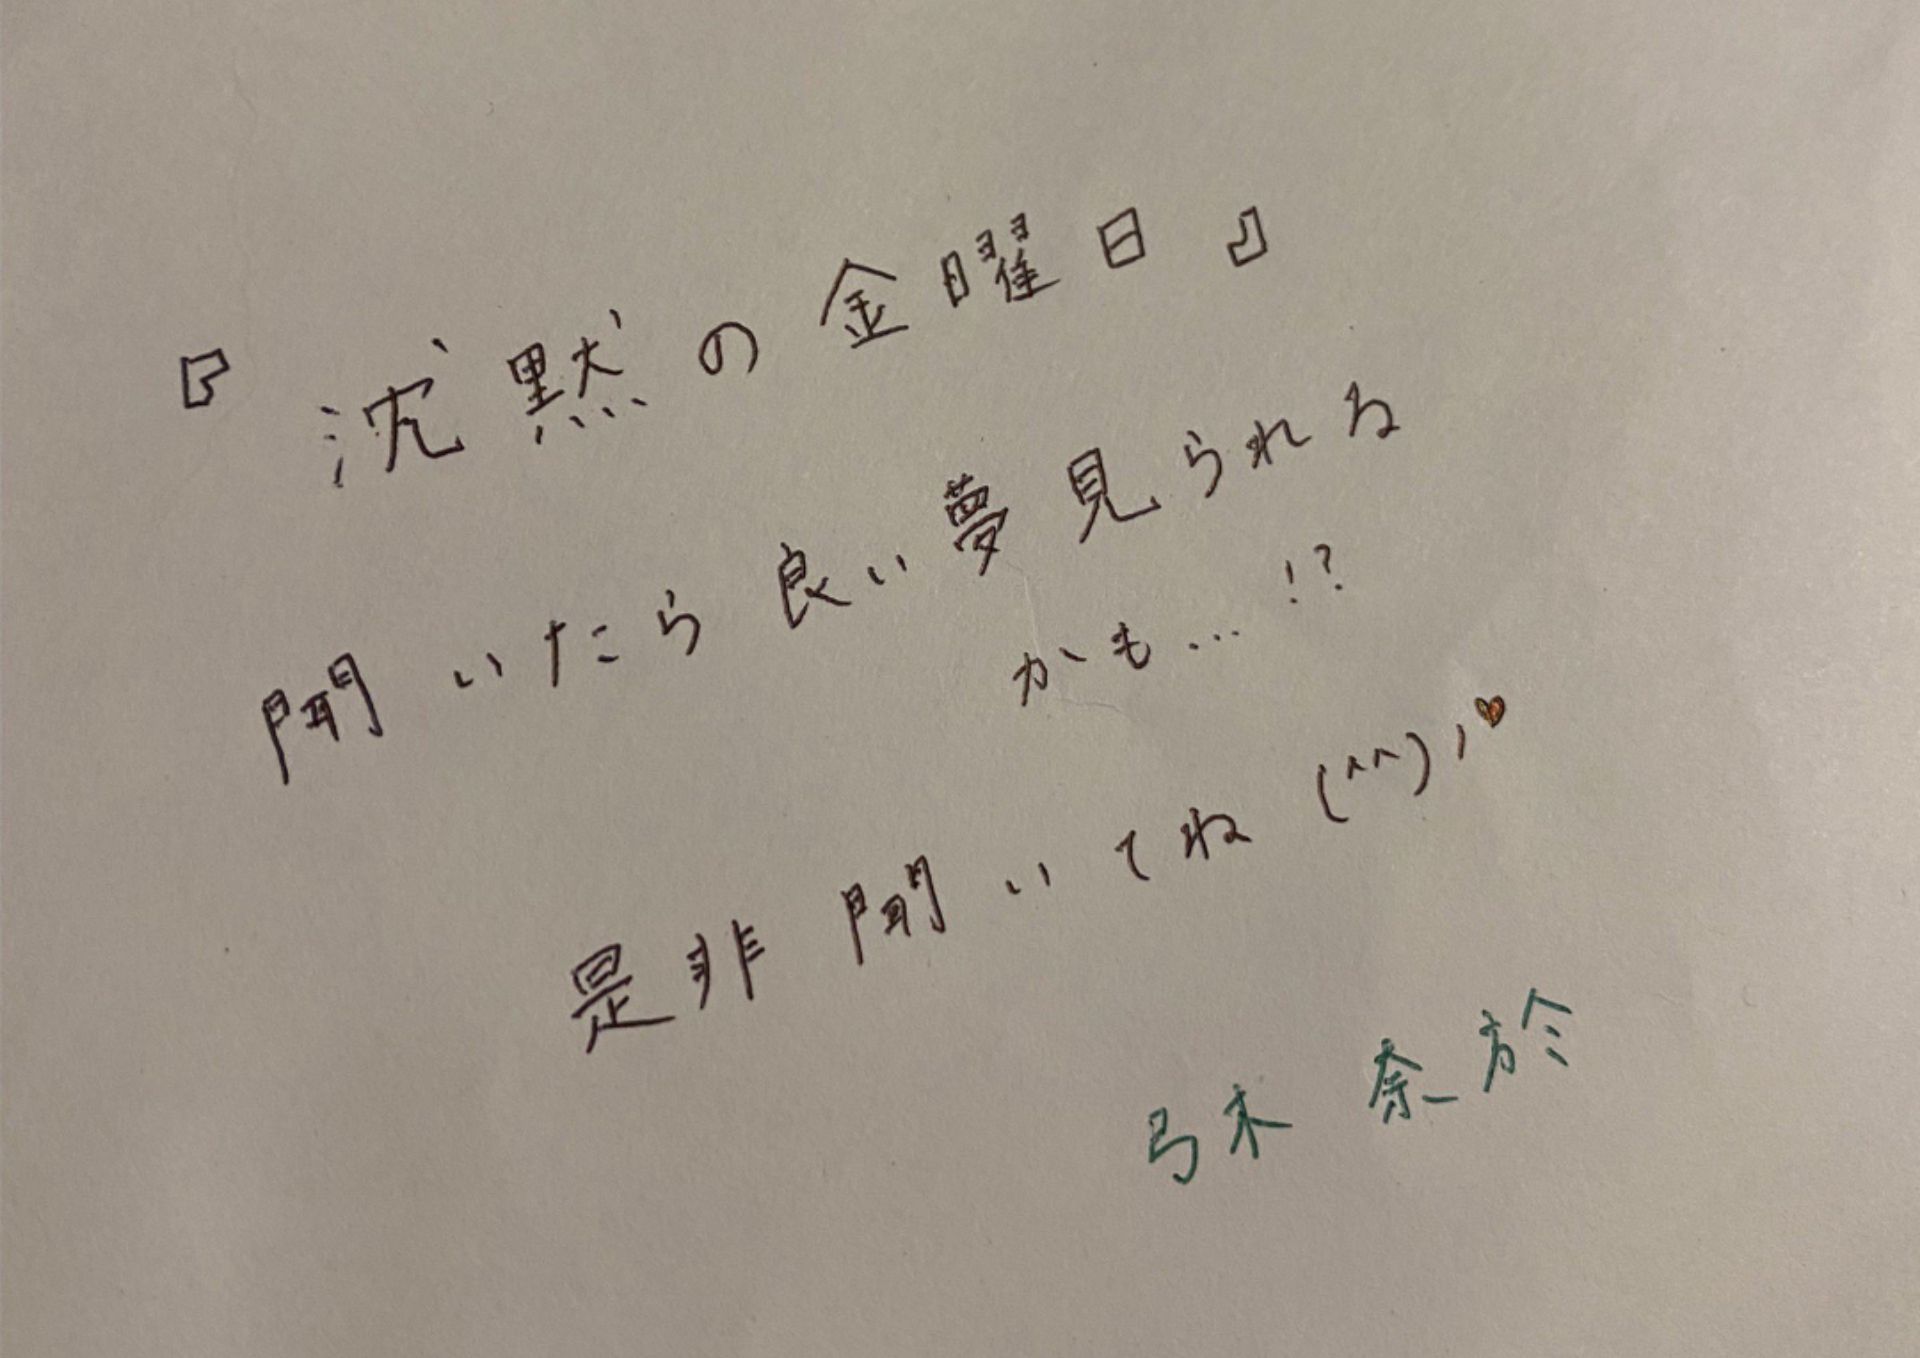 『沈黙の金曜日』
聞いたら良い夢見られる
かも…!?
是非聞いてね(^^)ノ♥
弓木奈於